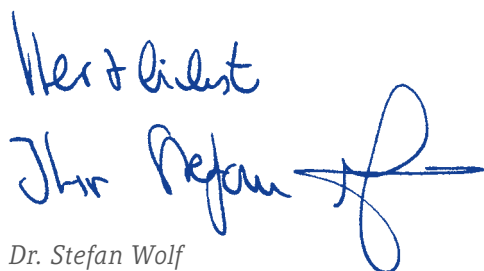 Herzlichst
Ihr Stefan
Dr. Stefan Wolf